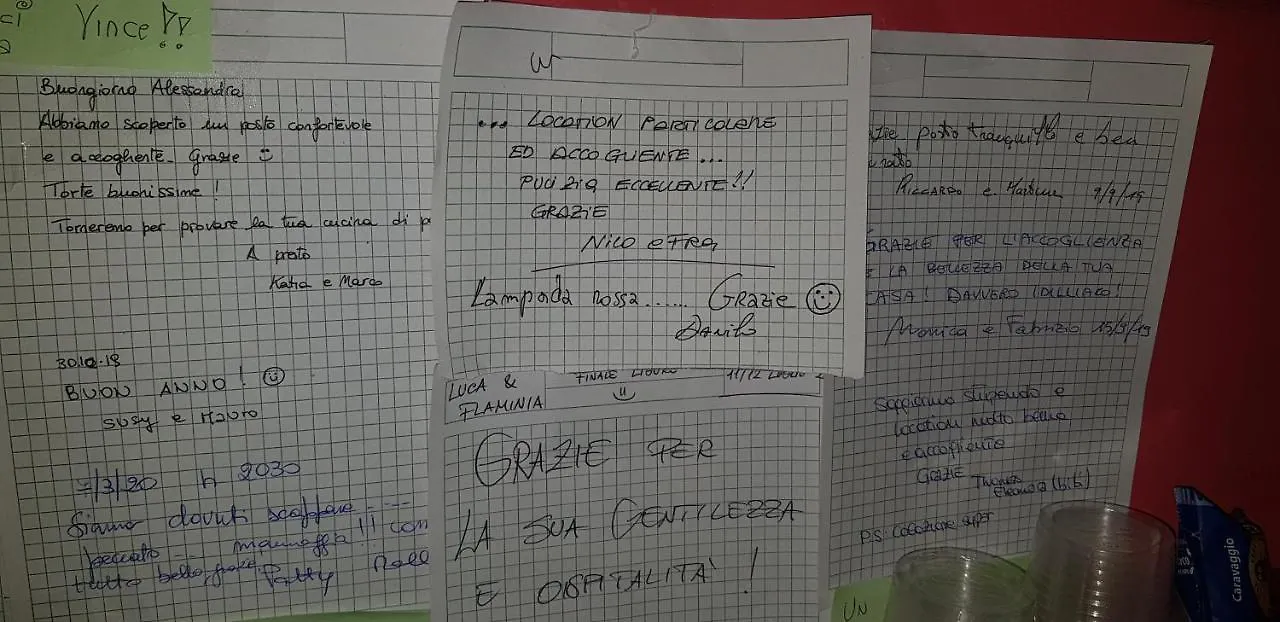 Vince!!
Buongiorno Alessandra
Abbiamo scoperto un posto confortevole
e accogliente. Grazie
Torte buonissime!
Torneremo per provare la tua cucina di
A presto
Katia e Marco
30.12.18
BUON ANNO!
SUSY e MAURO
7/3/20 h 2030
Siamo dovuti scappare
peccato mannaggia!! con
tutto bello, Patty
... LOCATION PARTICOLARE
ED ACCOGLIENTE...
PULIZIA ECCELLENTE!!
GRAZIE
NICO e FRA
Lampada rossa...... Grazie
Danilo
LUCA &
FLAMINIA
FINALE LIGURE
11/12 LUGLIO
GRAZIE PER
LA SUA GENTILEZZA
E OSPITALITA'!
posto tranquillo e
RICCARDO e 9/9/19
GRAZIE PER L'ACCOGLIENZA
E LA BELLEZZA DELLA TUA
CASA! DAVVERO IDILLIACO!
Monica e Fabrizio 15/9/19
Soggiorno stupendo e
location molto bella
e accogliente
Grazie Thomas
Eleonora (bibi)
P.S: Colazione super
UN
Caravaggio